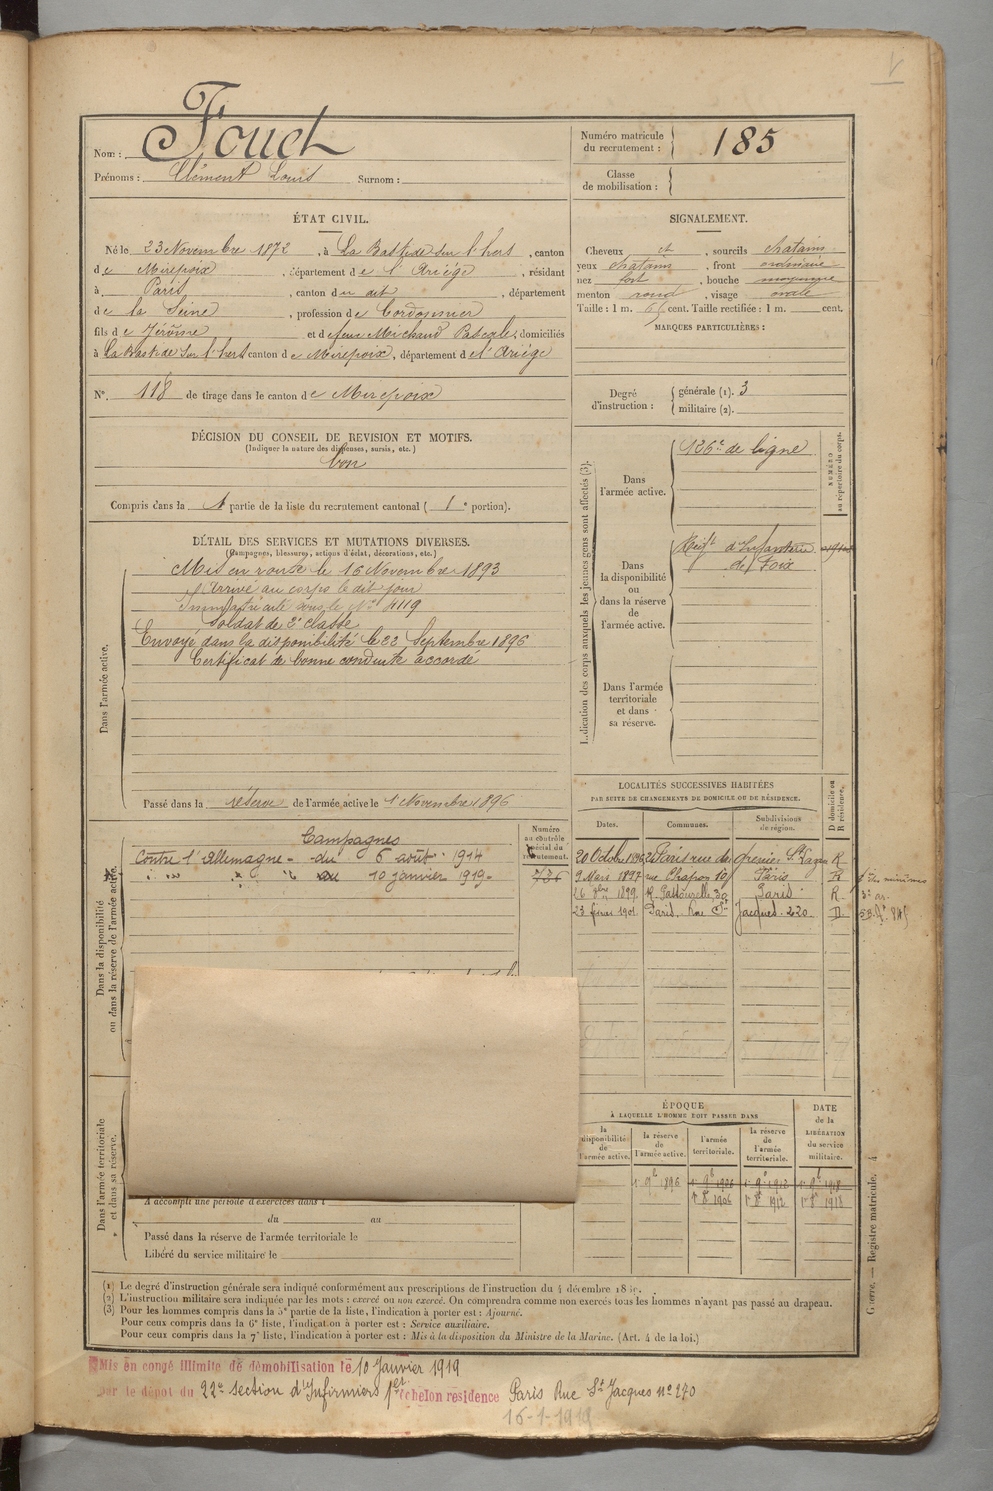 Nom : Fouet
Prénoms : Clément Louis Surnom :
Numéro matricule du recrutement : 185
Classe de mobilisation :
ÉTAT CIVIL.
Né le 23 Novembre 1872, à La Bastide sur l'hers, canton
de Mirepoix, département de l'Ariège, résidant
à Paris, canton du dit, département
de la Seine, profession de Cordonnier
fils de Jérôme et de feue Michaud Pascale, domiciliés
à La Bastide sur l'hers canton de Mirepoix, département de l'Ariège
N° 118 de tirage dans le canton de Mirepoix
SIGNALEMENT.
Cheveux et, sourcils chatains
yeux chatains, front ordinaire
nez fort, bouche moyenne
menton rond, visage ovale
Taille : 1 m. 66 cent. Taille rectifiée : 1 m. cent.
MARQUES PARTICULIÈRES :
Degré d'instruction : générale (1). 3
militaire (2).
DÉCISION DU CONSEIL DE REVISION ET MOTIFS.
(Indiquer la nature des dispenses, sursis, etc.)
bon
Compris dans la 1 partie de la liste du recrutement cantonal (1e portion).
DÉTAIL DES SERVICES ET MUTATIONS DIVERSES.
(Campagnes, blessures, actions d'éclat, décorations, etc.)
Dans l'armée active.
Mis en route le 16 Novembre 1893
Arrivé au corps le dit jour
Immatriculé sous le N° 4119
Soldat de 2e classe
Envoyé dans la disponibilité le 22 Septembre 1896
Certificat de bonne conduite accordé
Passé dans la réserve de l'armée active le 1 Novembre 1896
Indication des corps auxquels les jeunes gens sont affectés (3).
NUMÉRO au répertoire du corps.
Dans l'armée active.
126e de ligne
Dans la disponibilité ou dans la réserve de l'armée active.
Régt d'Infanterie
de Foix
Dans l'armée territoriale et dans sa réserve.
Dans la disponibilité ou dans la réserve de l'armée active.
Numéro au contrôle spécial du recrutement.
736
Campagnes
Contre l'Allemagne - du 6 août 1914
au 10 janvier 1919
LOCALITÉS SUCCESSIVES HABITÉES
PAR SUITE DE CHANGEMENTS DE DOMICILE OU DE RÉSIDENCE.
D domicile ou R résidence.
Dates. Communes. Subdivisions de région.
20 Octobre 1896 Paris rue du grenier St Lazare R
9 Mars 1897 rue Chapon 10 Paris R
26 9bre 1899 Paris R
23 février 1901 Paris Rue St Jacques 220 D
Dans l'armée territoriale et dans sa réserve.
A accompli une période d'exercices dans l
du au
Passé dans la réserve de l'armée territoriale le
Libéré du service militaire le
ÉPOQUE
À LAQUELLE L'HOMME DOIT PASSER DANS
la disponibilité de l'armée active.
la réserve de l'armée active.
l'armée territoriale.
la réserve de l'armée territoriale.
DATE de la LIBÉRATION du service militaire.
1 9b 1896 1 9b 1906 1 9e 1912 1 9b 1918
1 8b 1906 1 8e 1912 1 8e 1918
Guerre. — Registre matricule. 4
(1) Le degré d'instruction générale sera indiqué conformément aux prescriptions de l'instruction du 4 décembre 1889.
(2) L'instruction militaire sera indiquée par les mots : exercé ou non exercé. On comprendra comme non exercés tous les hommes n'ayant pas passé au drapeau.
(3) Pour les hommes compris dans la 5e partie de la liste, l'indication à porter est : Ajourné.
Pour ceux compris dans la 6e liste, l'indication à porter est : Service auxiliaire.
Pour ceux compris dans la 7e liste, l'indication à porter est : Mis à la disposition du Ministre de la Marine. (Art. 4 de la loi.)
Mis en congé illimité de démobilisation le 10 Janvier 1919
par le dépôt du 22e section d'Infirmiers 1er échelon résidence Paris Rue St Jacques n° 270
16-1-1919